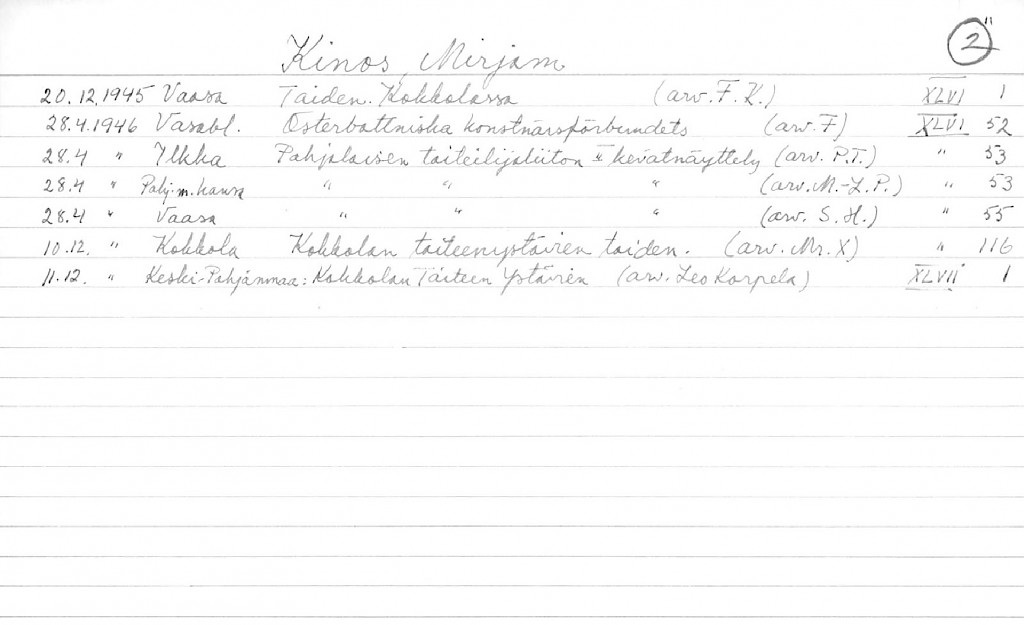 2"
Kinos, Mirjam
20.12.1945 Vaasa Taiden. Kokkolassa (arv. F. K.) XLVI 1
28.4.1946 Vasabl. Österbottniska konstnärsförbundets (arv. F) XLVI 52
28.4 " Ilkka Pohjalaisen taiteilijaliiton II kevätnäyttely (arv. P.T.) " 53
28.4 " Pohj.m. kansa " " " (arv. M.-L.P.) " 53
28.4 " Vaasa " " " (arv. S. H.) " 55
10.12. " Kokkola Kokkolan taiteenystävien taiden. (arv. Mr. X) " 116
11.12. " Keski-Pohjanmaa: Kokkolan Taiteen Ystävien (arv. Leo Korpela) XLVII 1